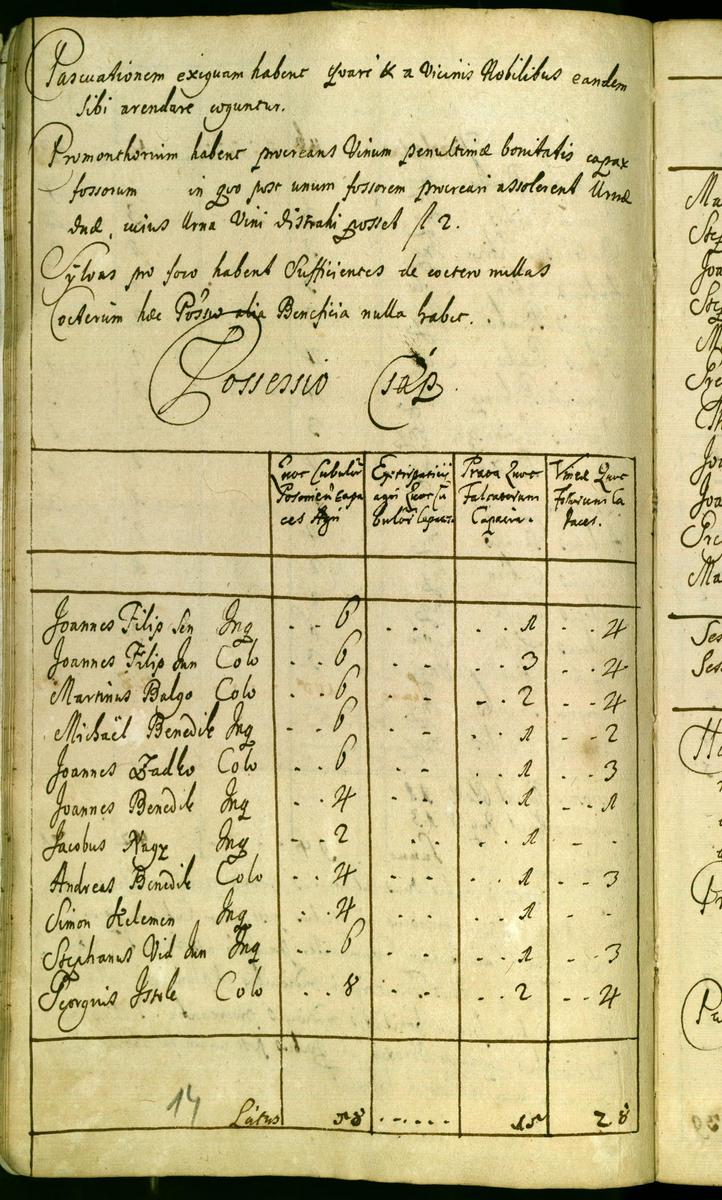 Pascuationem exiguam habent quare & a Vicinis Nobilibus eandem
sibi arendare coguntur.
Promonthorium habent procreans Vinum penultimæ bonitatis capax
fossorum in quo post unum fossorem procreari assolerent Urnæ
duæ, cuius Urna Vini distrahi posset fl 2.
Sÿlvas pro foco habent Sufficientes de cœtero nullas
Cœterum hæc Posso alia Beneficia nulla habet.
Possessio Csáp.
Quot Cubulor Posonien capaces Agri
Extirpatitii agri Quot Cubulor Capaces
Prata Quot Falcatorum Capacia.
Vineæ Quot Fossorum Capaces.
Joannes Filip Sen Inq . . 6 . . . . 1 . . 4
Joannes Filip Jun Colo . . 6 . . . . 3 . . 4
Martinus Balgo Colo . . 6 . . . . 2 . . 4
Michaël Benedik Inq . . 6 . . . . 1 . . 2
Joannes Zadko Colo . . 6 . . . . 1 . . 3
Joannes Benedik Inq . . 4 . . . . 1 . . 1
Jacobus Nagy Inq . . 2 . . . . 1 . .
Andreas Benedik Colo . . 4 . . . . 1 . . 3
Simon Kelemen Inq . . 4 . . . . 1 . .
Stephanus Vid Jun Inq . . 6 . . . . 1 . . 3
Georgius Istole Colo . . 8 . . . . 2 . . 4
14 Látus 58 . . . . . . 15 28